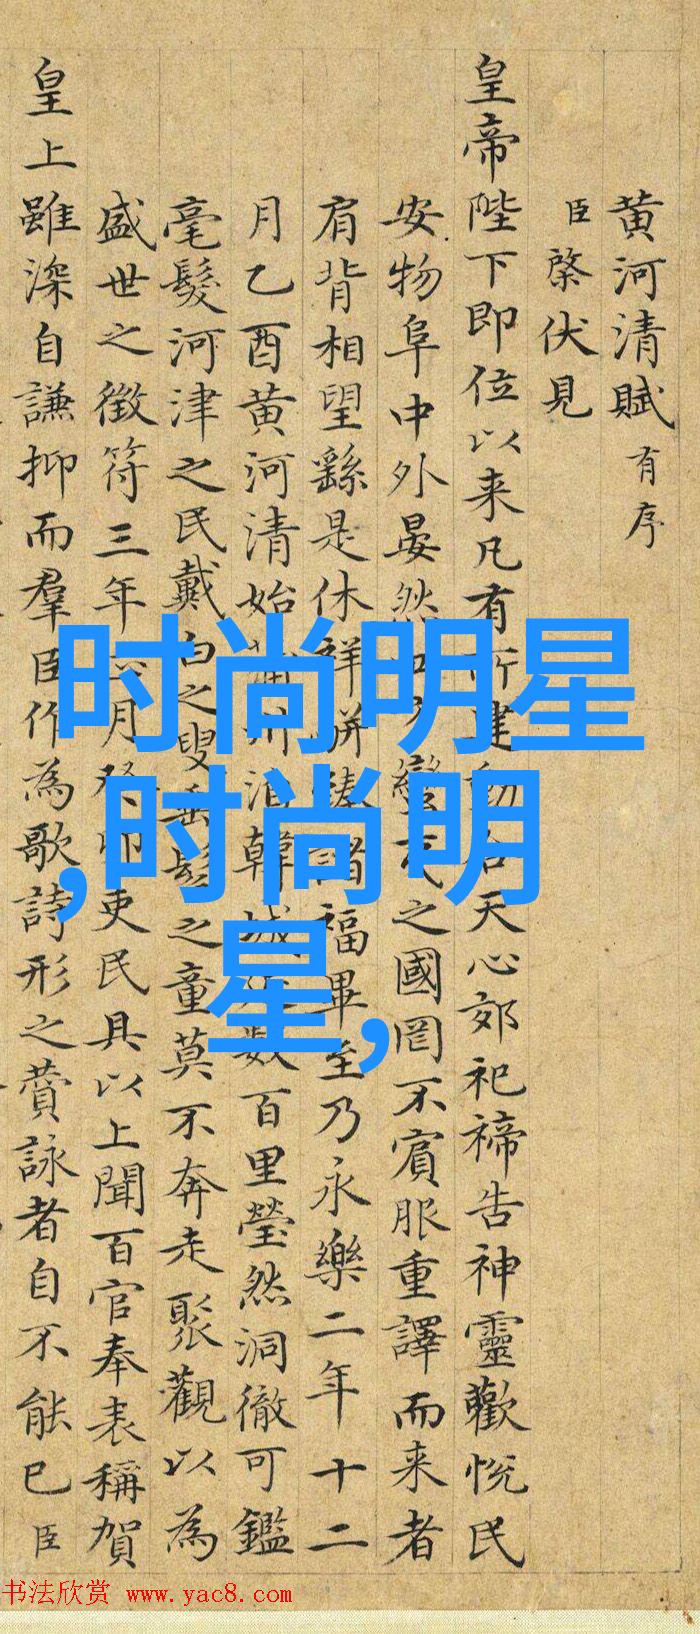 黄河清賦 有序
臣棨伏見
皇帝陛下即位以来凡有所建動合天心郊祀禘告神靈歡恱民
安物阜中外晏然蠻之國罔不賓服重譯而来者
肩背相望繇是休祥駢臻諸福畢至乃永樂二年十二
月乙酉黄河清始蒲州韓城數百里瑩然洞徹可鑑
毫髮河津之民戴白之叟垂髫之童莫不奔走聚觀以為
盛世之徵符三年六月癸卯吏民具以上聞百官奉表稱賀
皇上雖深自謙抑而羣臣作為歌詩形之賛詠者自不能已臣
时尚明星
,时尚明
星,
书法欣赏 www.yac8.com